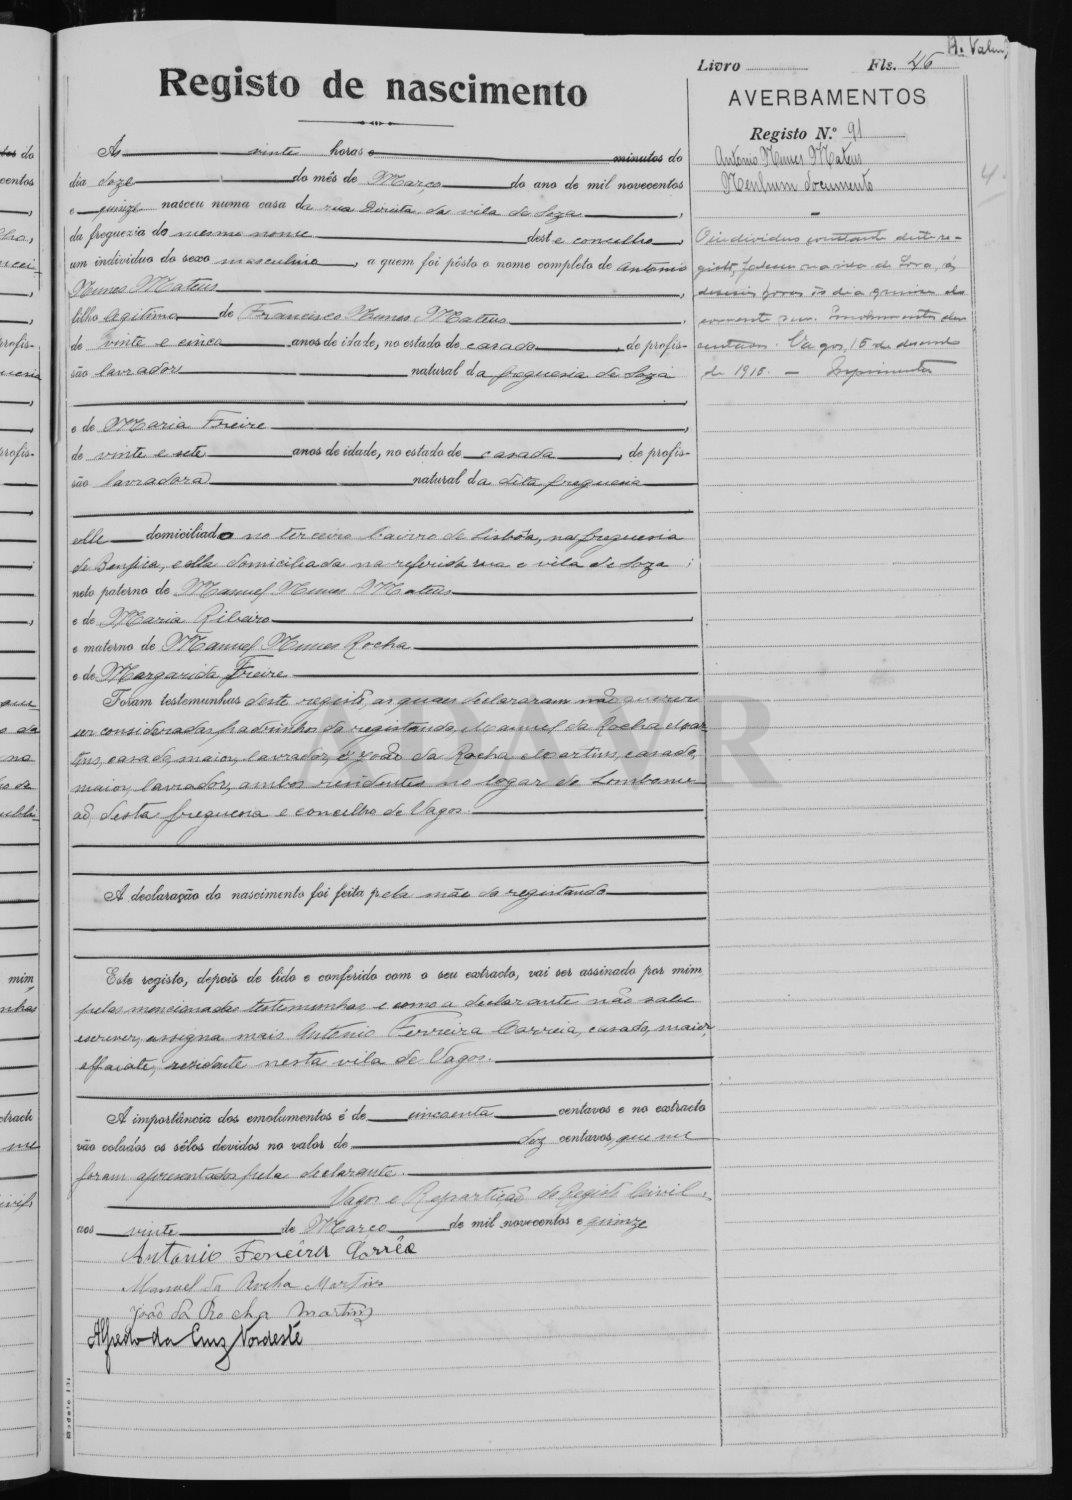 A. Valen
Livro Fls. 46
Registo de nascimento
AVERBAMENTOS
Registo N.º 91
Antonio Nunes Mateus
Nenhum documento
Ás vinte horas e minutos do
dia doze do mês de Março do ano de mil novecentos
e quinze nasceu numa casa da rua Direita da vila de Soza,
da freguezia do mesmo nome deste concelho,
um individuo do sexo masculino, a quem foi pôsto o nome completo de Antonio
Nunes Mateus,
filho legitimo de Francisco Nunes Mateus,
de vinte e cinco anos de idade, no estado de casado, de profis-
são lavrador natural da freguesia de Soza
e de Maria Freire,
de vinte e sete anos de idade, no estado de casada, de profis-
são lavradora natural da dita freguesia
elle domiciliado no terceiro bairro de Lisbôa, na freguesia
de Benfica, e ella domiciliada na referida rua e vila de Soza;
neto paterno de Manuel Nunes Mateus
e de Maria Ribeiro,
e materno de Manuel Nunes Rocha
e de Margarida Freire
Foram testemunhas deste registo, as quaes declararam não querer
ser consideradas padrinhos do registando, Manuel da Rocha Mar-
tins, casado, maior, lavrador, e João da Rocha Martins, casado,
maior, lavrador, ambos residentes no logar de Lombome-
ão, desta freguesia e concelho de Vagos.
A declaração do nascimento foi feita pela mãe do registando
Este registo, depois de lido e conferido com o seu extracto, vai ser assinado por mim,
pelas mencionadas testemunhas, e como a declarante não sabe
escrever, assigna mais Antonio Ferreira Correia, casado, maior,
alfaiate, residente nesta vila de Vagos.
A importância dos emolumentos é de cincoenta centavos e no extracto
vão colados os sêlos devidos no valor de dez centavos, que me
foram apresentados pela declarante.
Vagos e Repartição do Registo Civil,
aos vinte de Março de mil novecentos e quinze
Antonio Ferreira Corrêa
Manuel da Rocha Martins
João da Rocha Martins
Alfredo da Cruz Nordeste
O individuo constante deste re-
gisto, faleceu na vila de Soza, ás
horas do dia quinze do
corrente
Vagos, 15 de
de 1915.
4